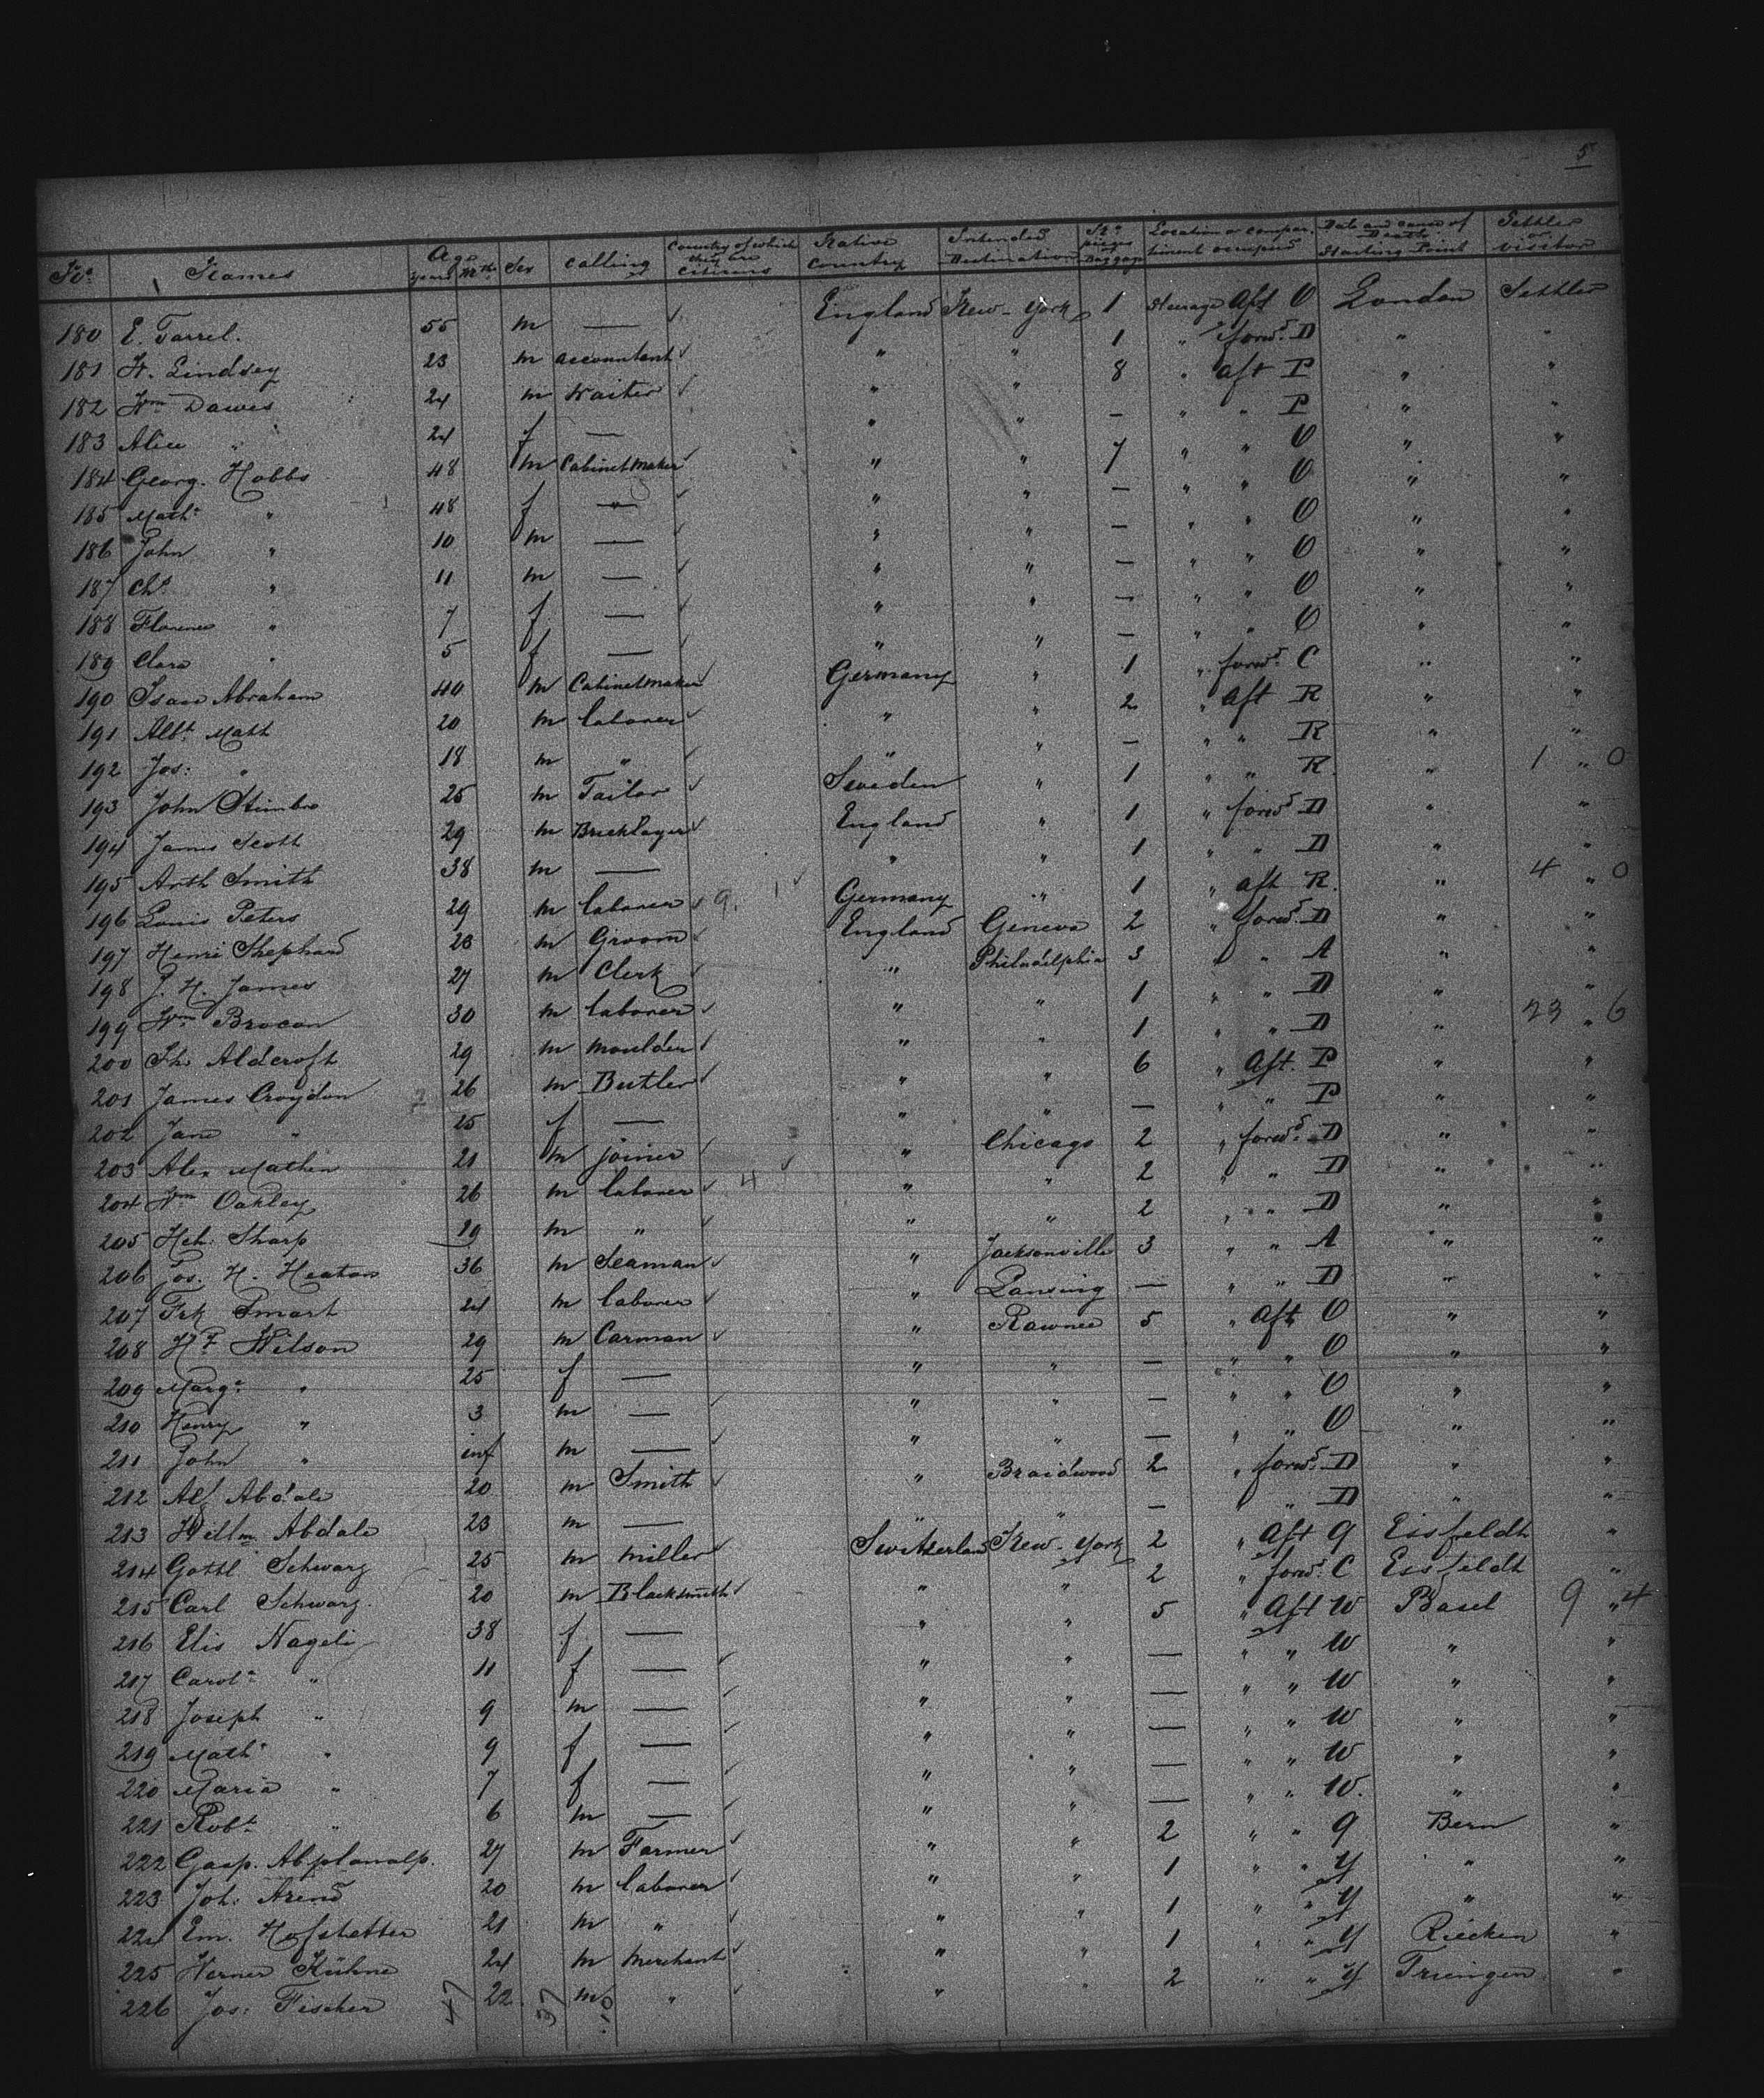 5
No. Names Age years Mths Sex Calling Country of which they are citizens Native Country Intended Destination No. pieces Baggage Location or compartment occupied Date and cause of Death Starting Point Settler or visitor
180 E. Farrel. 55 m — England New-York 1 Steerage Aft O London Settler
181 H. Lindsey 23 m accountant " " 1 " forwd. D " "
182 Wm Dawes 24 m Waiter " " 8 " aft P " "
183 Alice " 24 f — " " — " " P " "
184 Georg. Hobbs 48 m Cabinetmaker " " 7 " " O " "
185 Math. " 48 f — " " — " " O " "
186 John " 10 m — " " — " " O " "
187 Chs. " 11 m — " " — " " O " "
188 Florence " 7 f — " " — " " O " "
189 Clara " 5 f — " " — " " O " "
190 Isaac Abraham 40 m Cabinetmaker Germany " 1 " forwd. C " "
191 Albt. Math 20 m laborer " " 2 " Aft R " "
192 Jos: " 18 m " " " — " " R " "
193 John Stimbro 25 m Tailor Sweden " 1 " " R. " 1 " 0
194 James Scott 29 m Bricklayer England " 1 " forwd D " "
195 Arth Smith 38 m — " " 1 " " D " "
196 Louis Peters 29 m laborer 9. 1 Germany " 1 " aft R. " 4 " 0
197 Henri Shephard 28 m Groom England Geneva 2 " forwd. D " "
198 J. H. James 27 m Clerk " Philadelphia 3 " " A " "
199 Wm Brocan 30 m laborer " " 1 " " D " "
200 Th. Aldcroft 29 m moulder " " 1 " " D " 23 " 6
201 James Croydon 26 m Butler " " 6 " Aft. P " "
202 Jane " 25 f — " " — " " P " "
203 Alex Mathin 21 m joiner " Chicago 2 " forwd. D " "
204 Wm Oakley 26 m laborer 4 " " 2 " " D " "
205 Hch. Sharp 19 m " " " 2 " " D " "
206 Jos. H. Heaton 36 m Seaman " Jacksonville 3 " " A " "
207 Frk Smart 24 m laborer " Lansing — " " D " "
208 Hy Wilson 29 m Carman " Pawnee 5 " Aft O " "
209 Margt. " 25 f — " " — " " O " "
210 Henry " 3 m — " " — " " O " "
211 John " inf m — " " — " " O " "
212 Alf Abdale 20 m Smith " Braidwood 2 " forwd. D " "
213 Willm. Abdale 23 m — " " — " " D " "
214 Gottl Schwarz 25 m miller Switzerland New-York 2 " Aft Q Eisfeldt "
215 Carl Schwarz. 20 m Blacksmith " " 2 " forwd. C Eisfeldt "
216 Elis Nageli 38 f — " " 5 " Aft W Basel 9 " 4
217 Carol. " 11 f — " " — " " W " "
218 Joseph " 9 m — " " — " " W " "
219 Math. " 9 f — " " — " " W " "
220 Maria " 7 f — " " — " " W " "
221 Robt. " 6 m — " " — " " W. " "
222 Gasp. Abplanalp. 27 m Farmer " " 2 " " Q Bern "
223 Joh: Arend 20 m laborer " " 1 " " Y " "
224 Em. Hofstetter 21 m " " " 1 " " Y " "
225 Werner Kühne 24 m Merchant " " 1 " " Y Riecken "
226 Jos: Fischer 22. m " " " 2 " " Y Triengen "
47 37 10